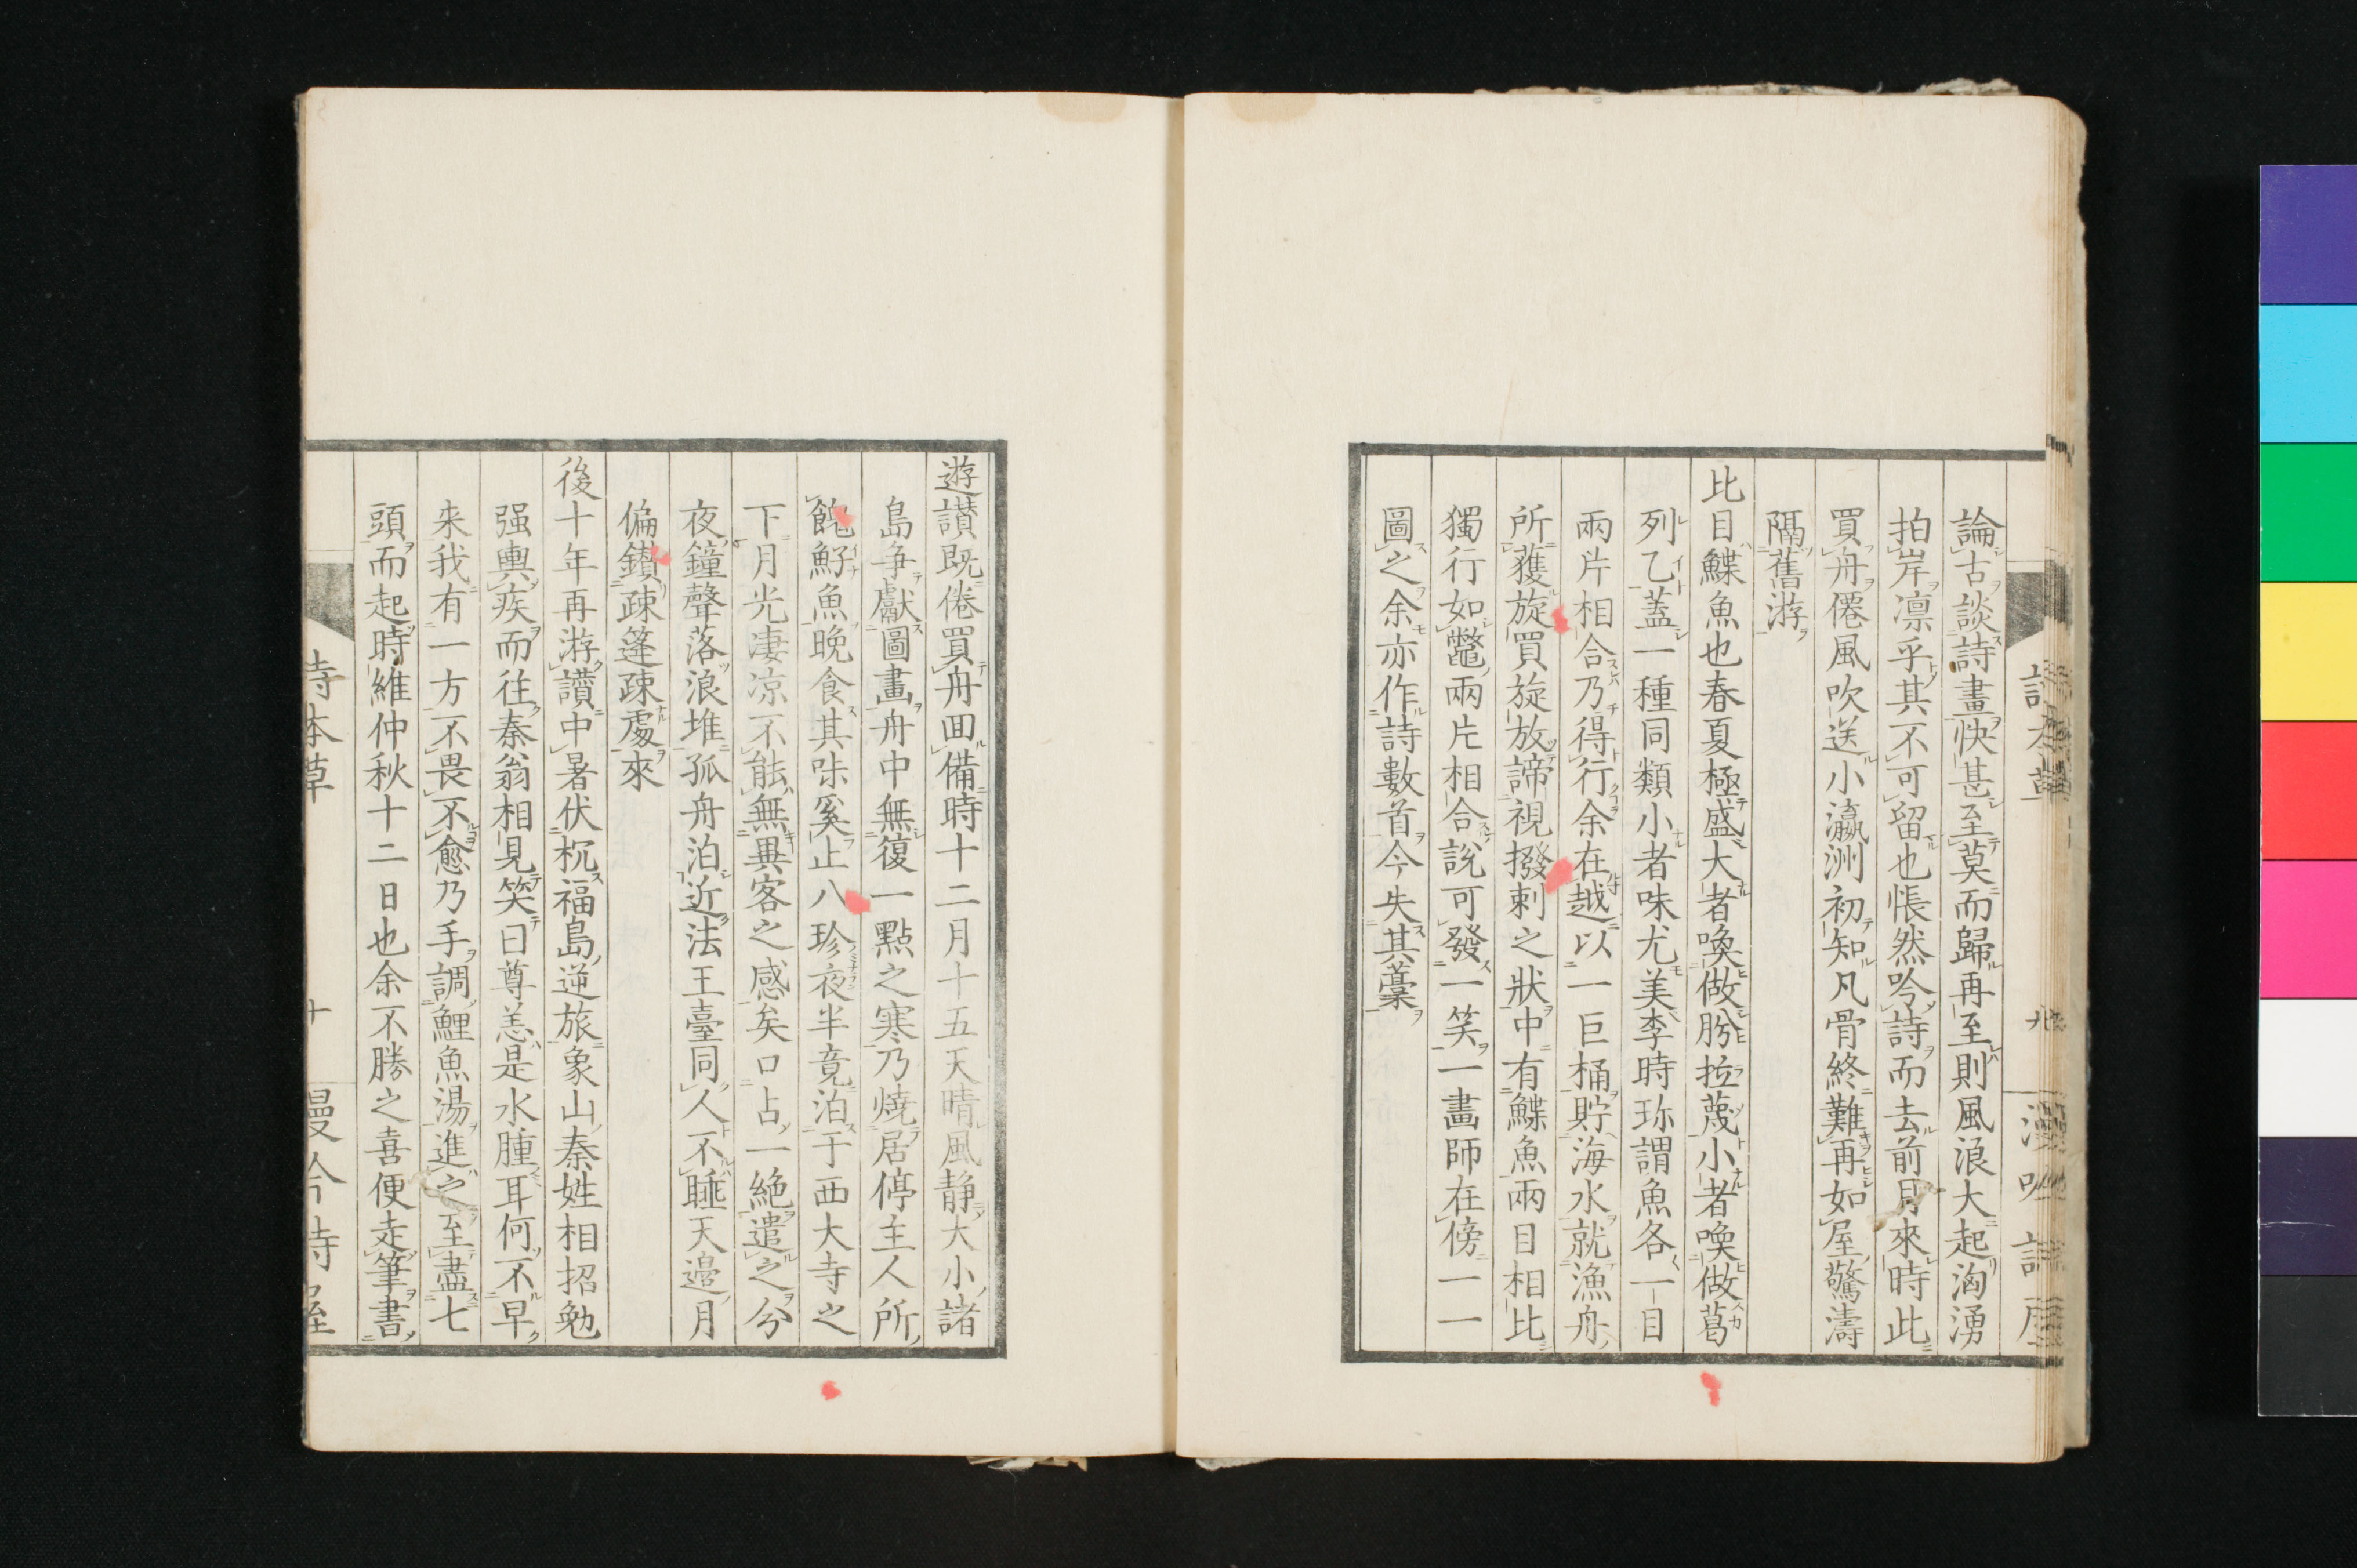 論古談詩畫快甚至莫而歸再至則風浪大起洶湧
拍岸凛乎其不可留也悵然吟詩而去前月來時此
買舟僊風吹送小瀛洲初知凡骨終難再如屋驚濤
隔舊游
比目鰈魚也春夏極盛大者喚做肹拉蔑小者喚做葛
列乙蓋一種同類小者味尤美李時珍謂魚各一目
兩片相合乃得行余在越以一巨桶貯海水就漁舟
所獲旋買旋放諦視撥剌之狀中有鰈魚兩目相比
獨行如鼈兩片相合說可發一笑一畫師在傍一一
圖之余亦作詩數首今失其藁
遊讃既倦買舟回備時十二月十五天晴風静大小諸
島爭獻圖畫舟中無復一點之寒乃燒居停主人所
餽鮓魚晚食其味奚止八珍夜半竟泊于西大寺之
下月光凄凉不能無異客之感矣口占一絶遣之分
夜鐘聲落浪堆孤舟泊近法王臺同人不睡天邊月
偏鑚疎篷疎處來
後十年再游讃中暑伏枕福島逆旅象山秦姓相招勉
强輿疾而往秦翁相見笑曰尊恙是水腫耳何不早
来我有一方不畏不愈乃手調鯉魚湯進之至盡七
頭而起時維仲秋十二日也余不勝之喜便走筆書
詩本草
十